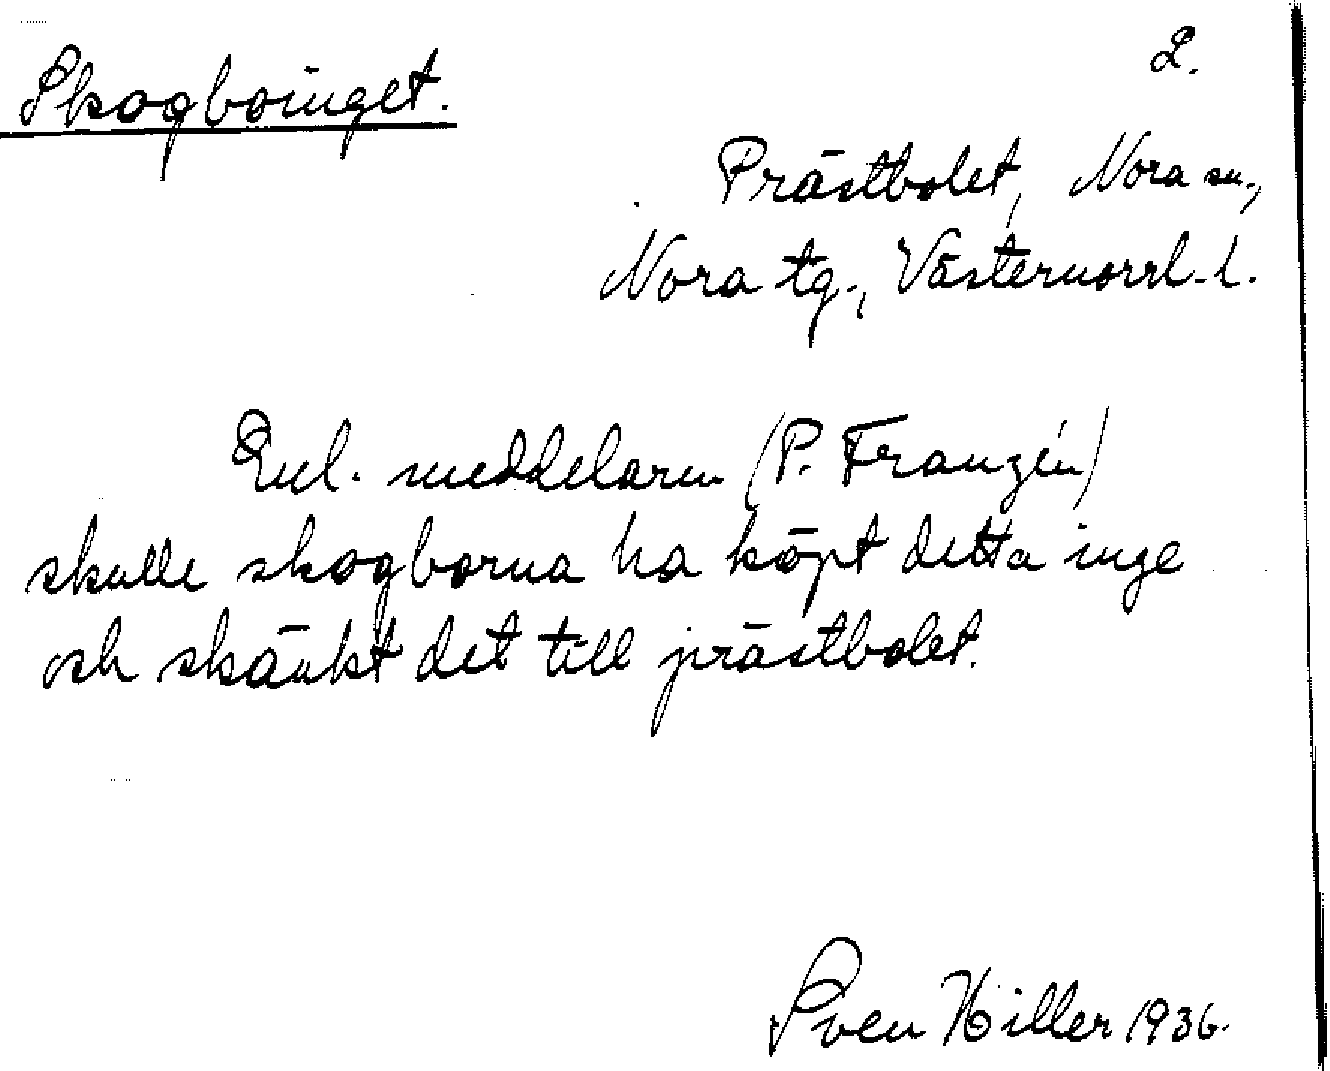 2.
Skogboinget.
Prästbolet, Nora sn.,
Nora tg., Västernorrl. l.
Enl. meddelaren (P. Franzén)
skulle skogborna ha köpt detta inge
och skänkt det till prästbolet.
Sven Hiller 1936.